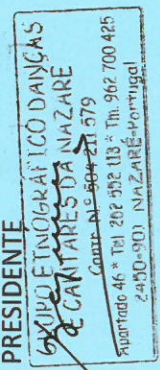 PRESIDENTE
GRUPO ETNOGRÁFICO DANÇAS
E CANTARES DA NAZARÉ
Contr. N.º 504 211 579
Apartado 46 * Tel 262 552 113 * Tm. 962 700 425
2450-901 NAZARÉ-Portugal